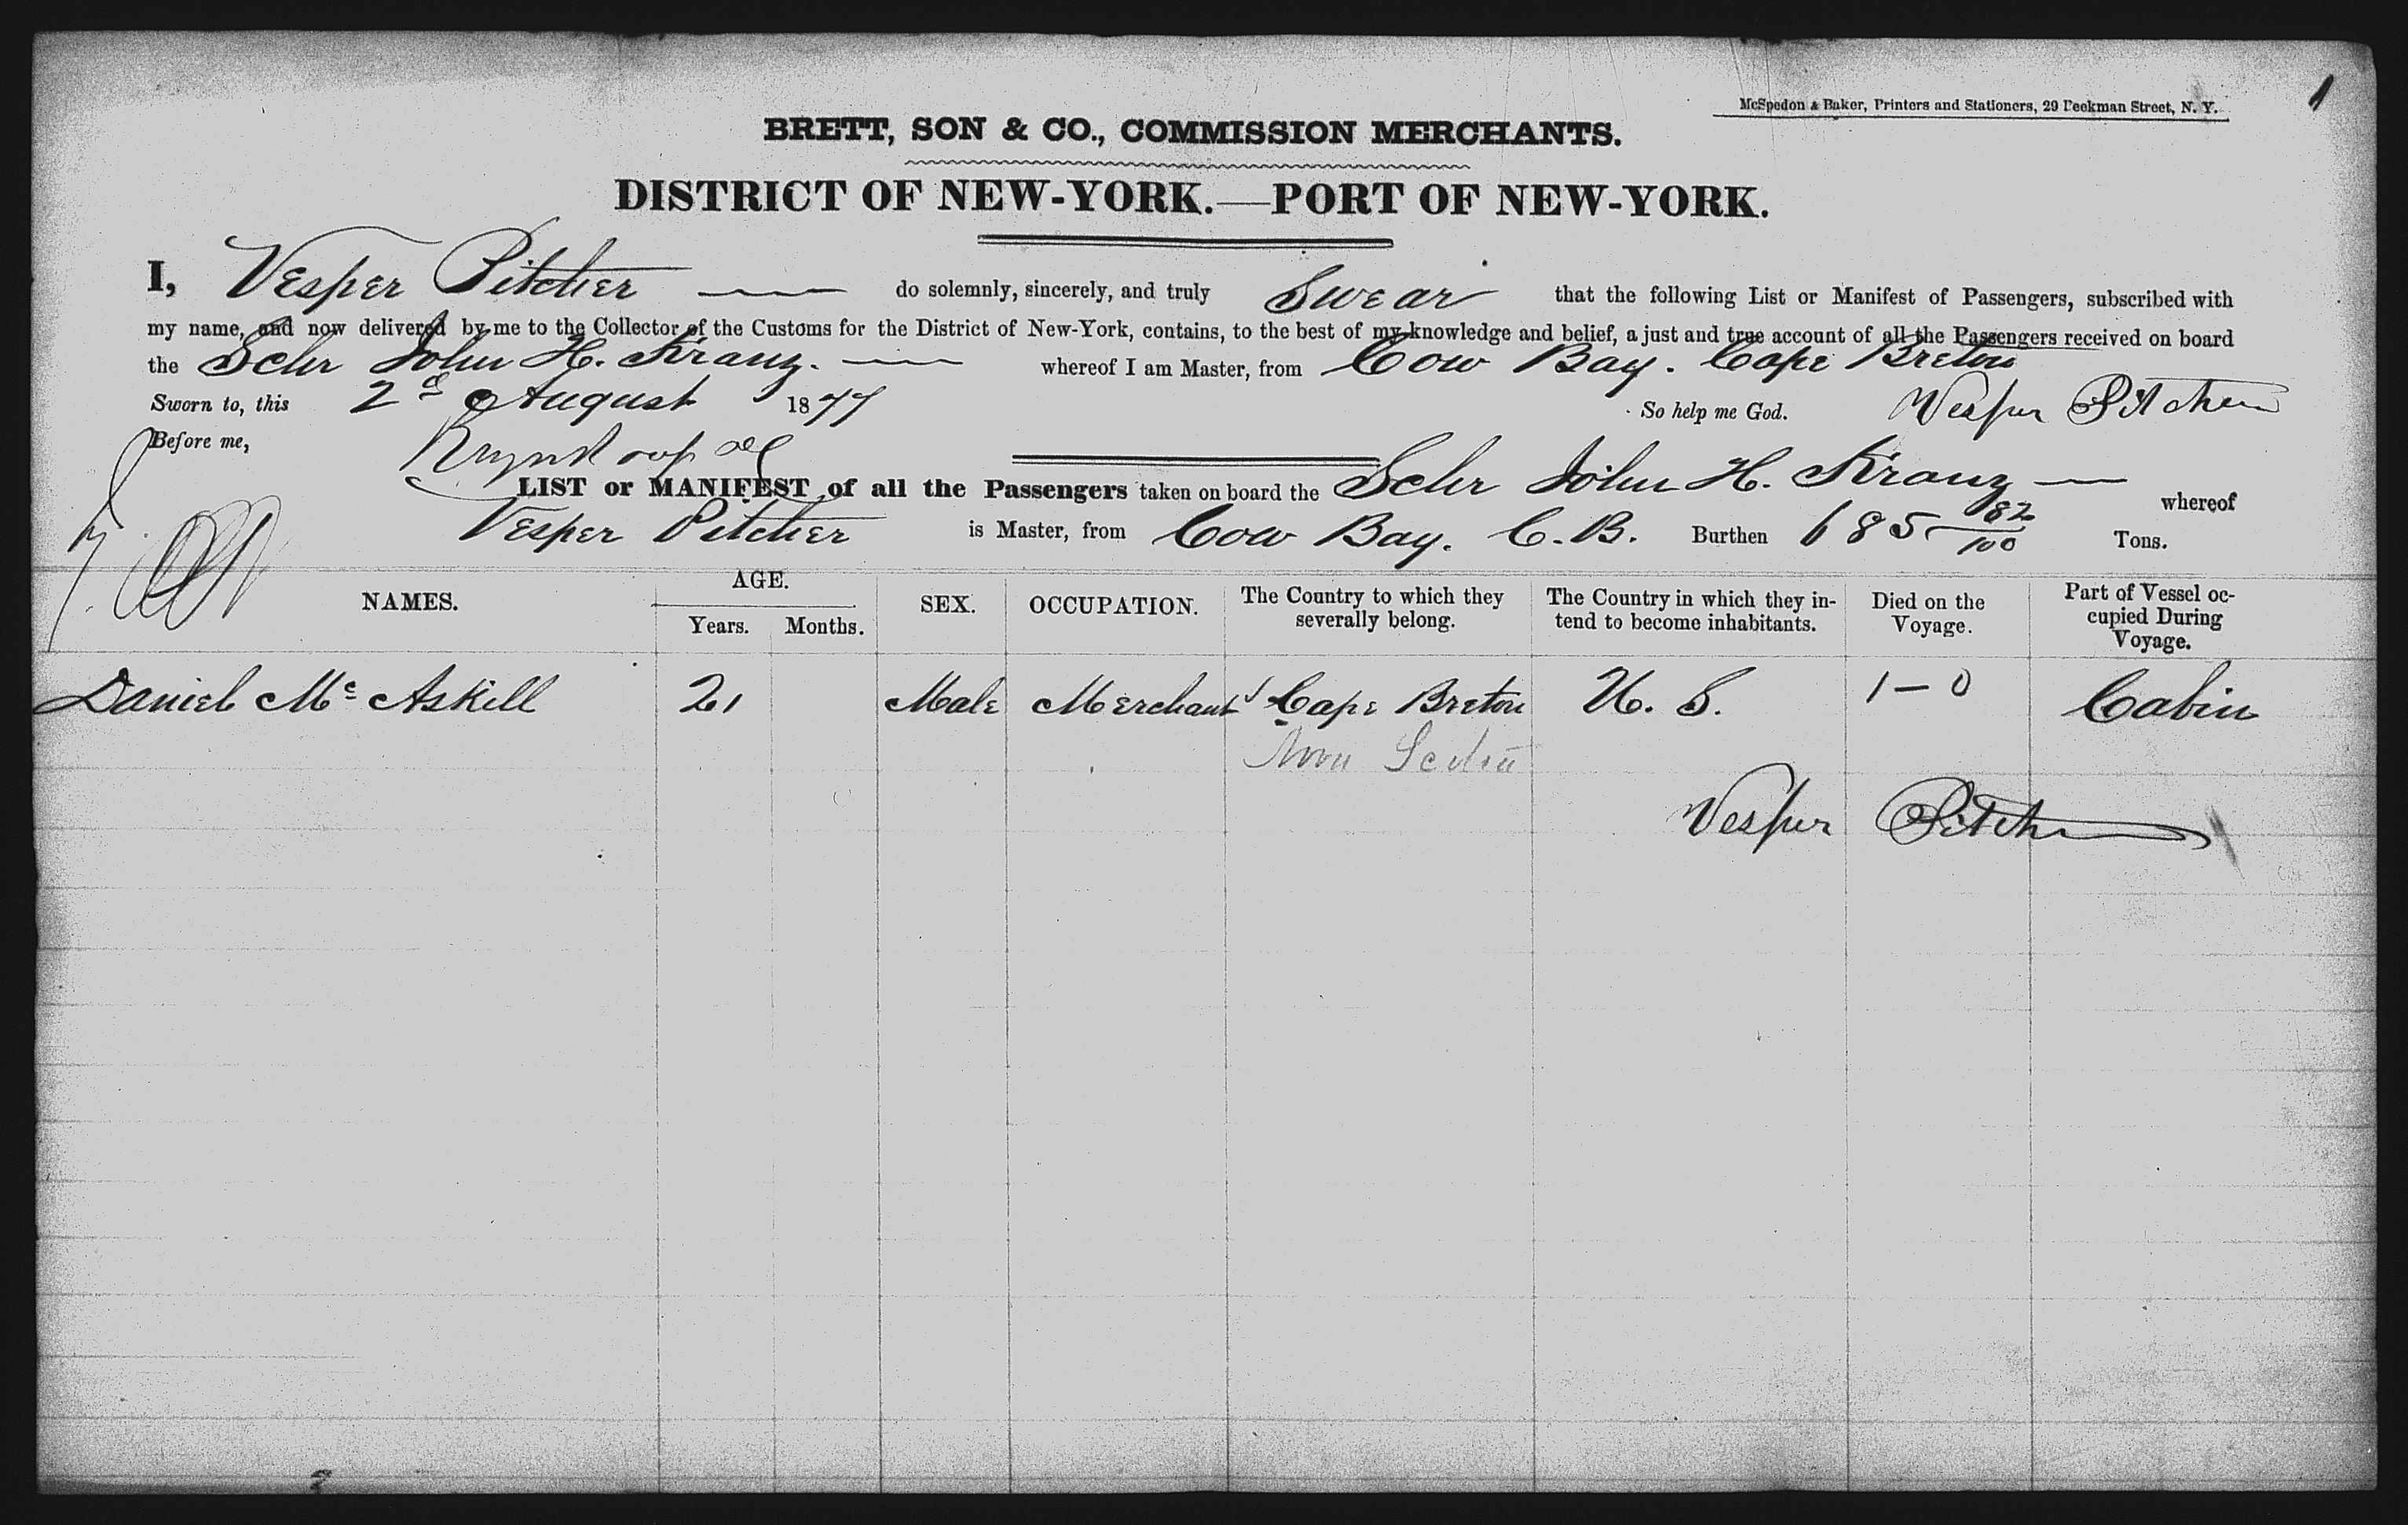 1
McSpedon & Baker, Printers and Stationers, 29 Beekman Street, N. Y.
BRETT, SON & CO., COMMISSION MERCHANTS.
DISTRICT OF NEW-YORK.—PORT OF NEW-YORK.
I, Vesper Pitcher — do solemnly, sincerely, and truly Swear that the following List or Manifest of Passengers, subscribed with
my name, and now delivered by me to the Collector of the Customs for the District of New-York, contains, to the best of my knowledge and belief, a just and true account of all the Passengers received on board
the Schr John H. Kranz. — whereof I am Master, from Cow Bay. Cape Breton
Sworn to, this 2d August 1877 So help me God. Vesper Pitcher
Before me,
LIST or MANIFEST of all the Passengers taken on board the Schr John H. Kranz — whereof
Vesper Pitcher is Master, from Cow Bay. C. B. Burthen 685 82/100 Tons.
NAMES. AGE. Years. Months. SEX. OCCUPATION. The Country to which they severally belong. The Country in which they intend to become inhabitants. Died on the Voyage. Part of Vessel occupied During Voyage.
Daniel Mc Askill 21 Male Merchant Cape Breton U. S. 1-0 Cabin
Nova Scotia
Vesper Pitcher